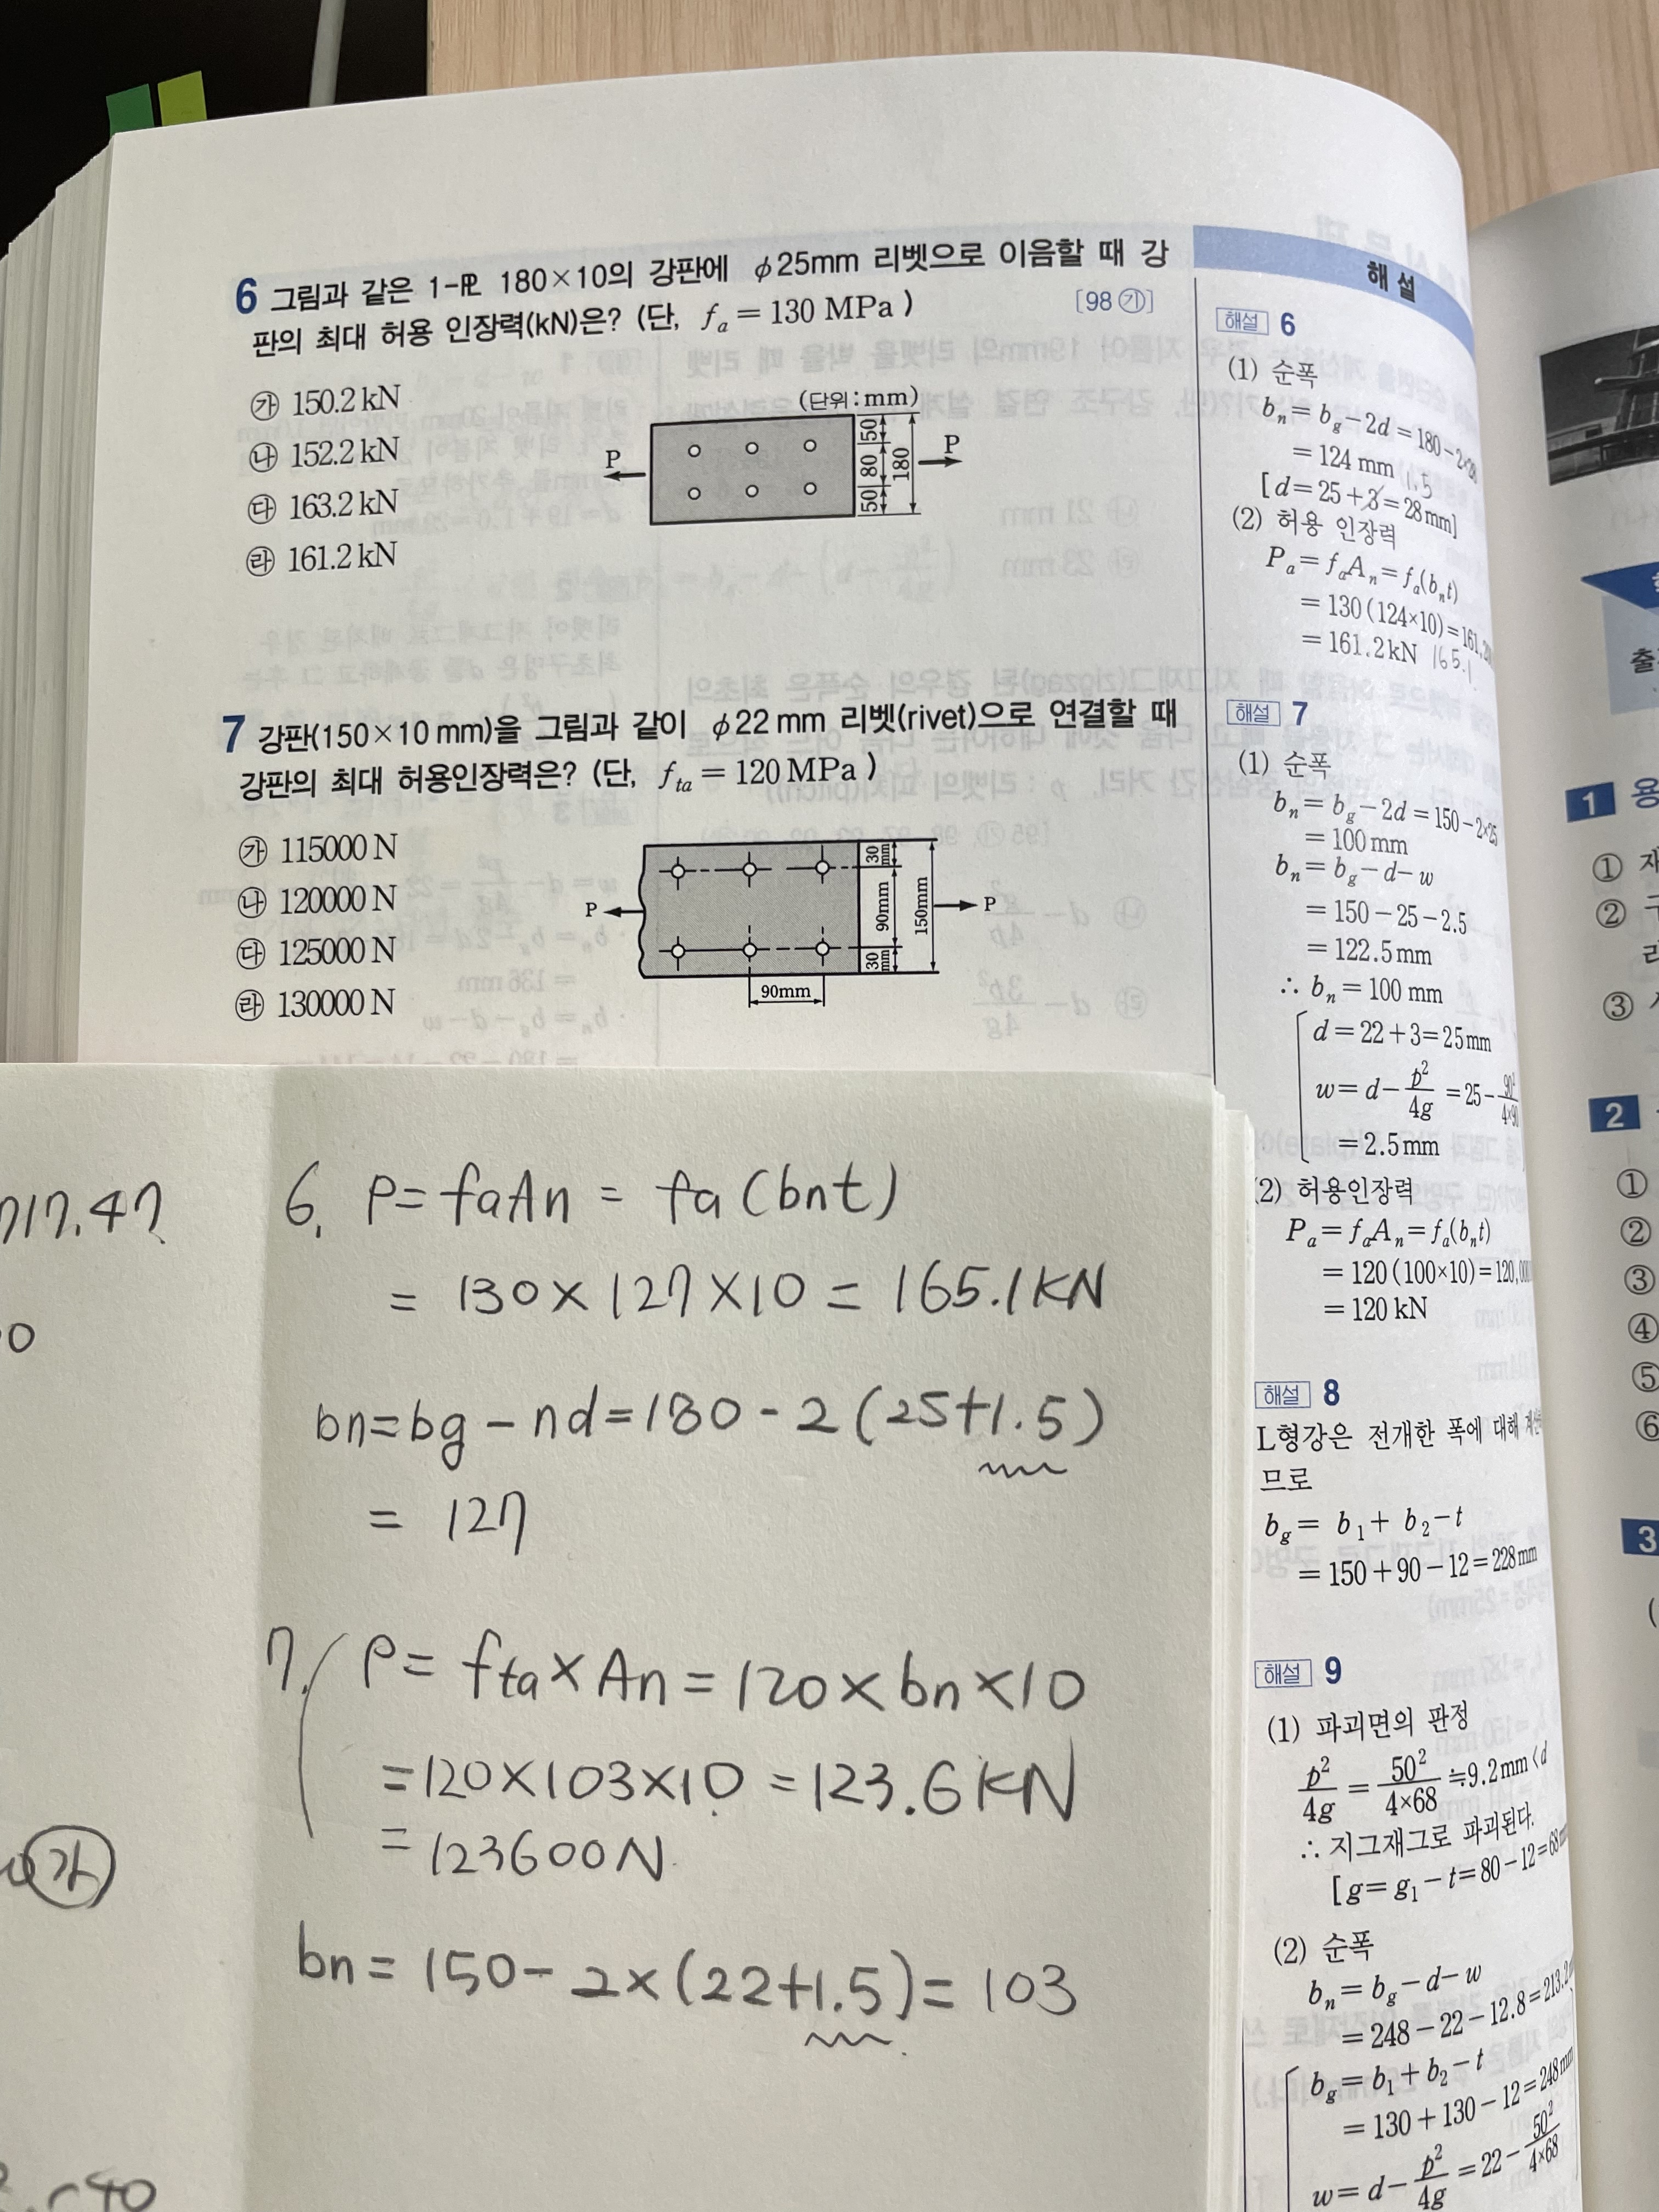 6 그림과 같은 1-PL 180×10의 강판에 φ25mm 리벳으로 이음할 때 강
판의 최대 허용 인장력(kN)은? (단, fa = 130 MPa ) [98 ㉮]
㉮ 150.2 kN
㉯ 152.2 kN
㉰ 163.2 kN
㉱ 161.2 kN
(단위 : mm)
P
50
80
50
180
P
7 강판(150×10 mm)을 그림과 같이 φ22 mm 리벳(rivet)으로 연결할 때
강판의 최대 허용인장력은? (단, fta = 120 MPa )
㉮ 115000 N
㉯ 120000 N
㉰ 125000 N
㉱ 130000 N
P
30 mm
90mm
30 mm
150mm
P
90mm
해 설
해설 6
(1) 순폭
bn = bg − 2d = 180 − 2×28
= 124 mm
1.5
[d = 25 + 3 = 28 mm]
(2) 허용 인장력
Pa = faAn = fa(bnt)
= 130 (124×10) = 161,20
= 161.2 kN 165.1
해설 7
(1) 순폭
bn = bg − 2d = 150 − 2×25
= 100 mm
bn = bg − d − w
= 150 − 25 − 2.5
= 122.5 mm
∴ bn = 100 mm
d = 22 + 3 = 25 mm
w = d − p²/4g = 25 − 90²/4×90
= 2.5 mm
(2) 허용인장력
Pa = faAn = fa(bnt)
= 120 (100×10) = 120,000
= 120 kN
해설 8
L형강은 전개한 폭에 대해 계산
므로
bg = b1 + b2 − t
= 150 + 90 − 12 = 228 mm
해설 9
(1) 파괴면의 판정
p²/4g = 50²/4×68 ≒ 9.2 mm < d
∴ 지그재그로 파괴된다.
[g = g1 − t = 80 − 12 = 68
(2) 순폭
bn = bg − d − w
= 248 − 22 − 12.8 = 213.2
bg = b1 + b2 − t
= 130 + 130 − 12 = 248 mm
w = d − p²/4g = 22 − 50²/4×68
717.47
0
가
40
6. P = faAn = fa (bnt)
= 130 × 127 × 10 = 165.1 KN
bn = bg − nd = 180 − 2 (25+1.5)
= 127
7. P = fta × An = 120 × bn × 10
= 120 × 103 × 10 = 123.6 KN
= 123600 N
bn = 150 − 2 × (22+1.5) = 103
출
1 용
①
②
③
2
①
②
③
④
⑤
⑥
3